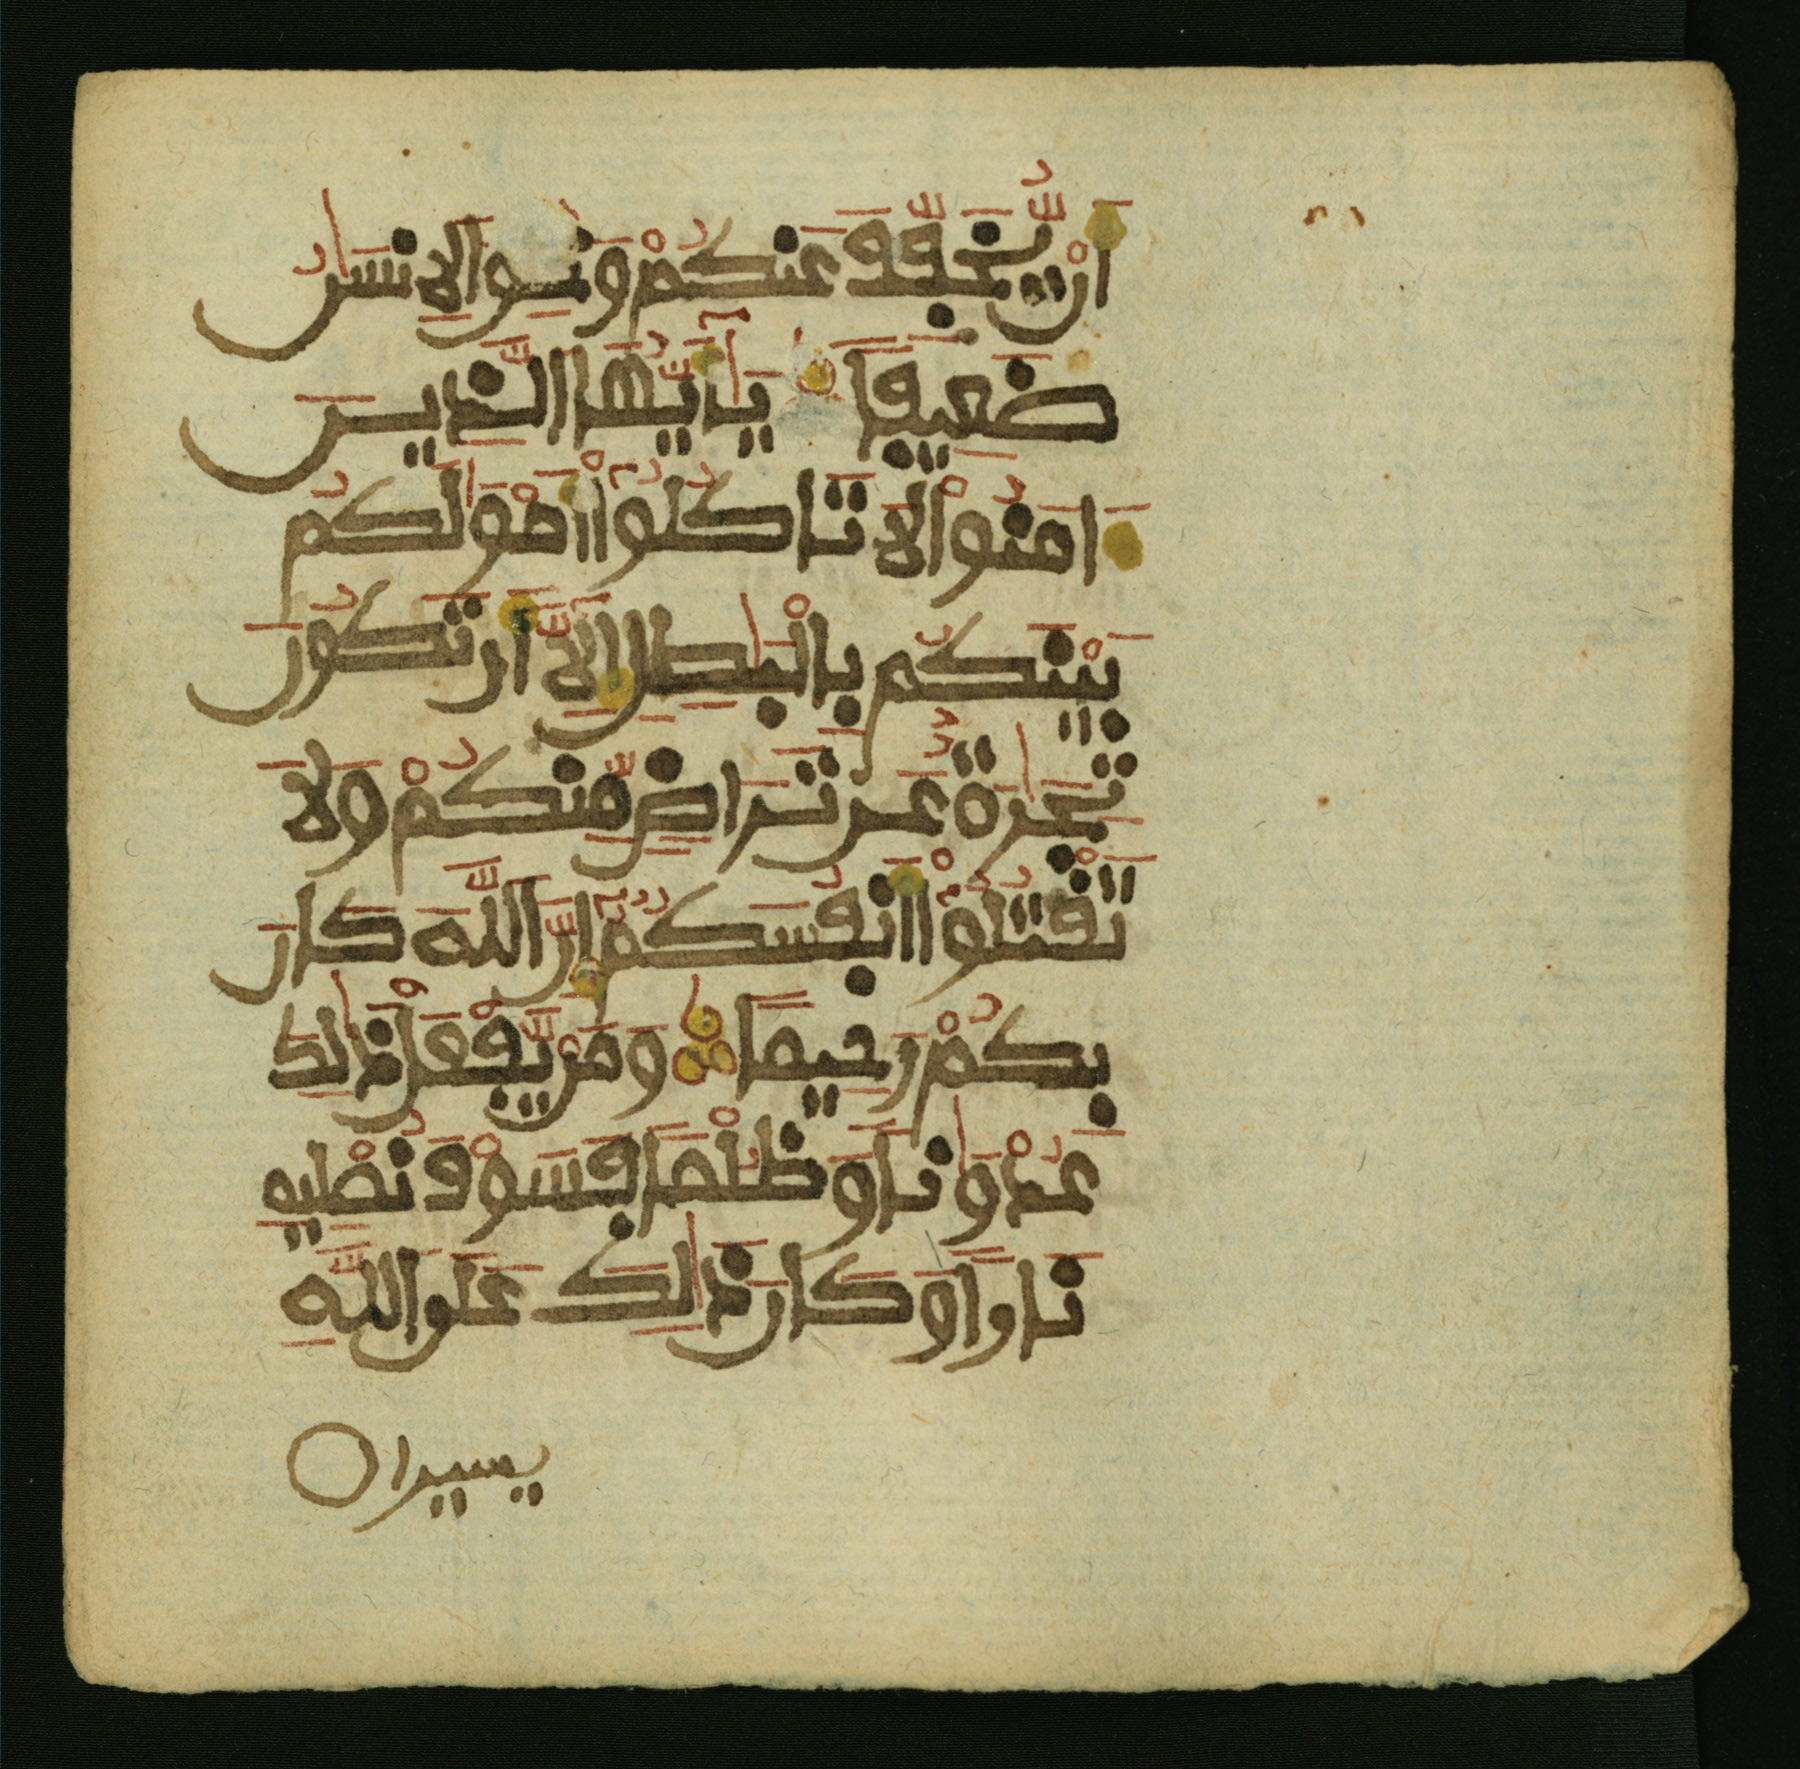 أَنْ يُّخَفِّفَ عَنكُمْ وَخُلِقَ الاِنسَٰنُ
ضَعِيفًا يَٰأَيُّهَا الَّذِينَ
ءَامَنُواْ لَا تَاكُلُواْ أَمْوَٰلَكُم
بَيْنَكُم بِالْبَٰطِلِ إِلَّا أَن تَكُونَ
تِجَٰرَةٌ عَن تَرَاضٍ مِّنكُمْ وَلَا
تَقْتُلُواْ أَنفُسَكُمُ إِنَّ اللَّهَ كَانَ
بِكُمْ رَحِيمًا وَمَنْ يَّفْعَلْ ذَٰلِكَ
عُدْوَٰنًا وَظُلْمًا فَسَوْفَ نُصْلِيهِ
نَارًا وَكَانَ ذَٰلِكَ عَلَى اللَّهِ
يسيرا